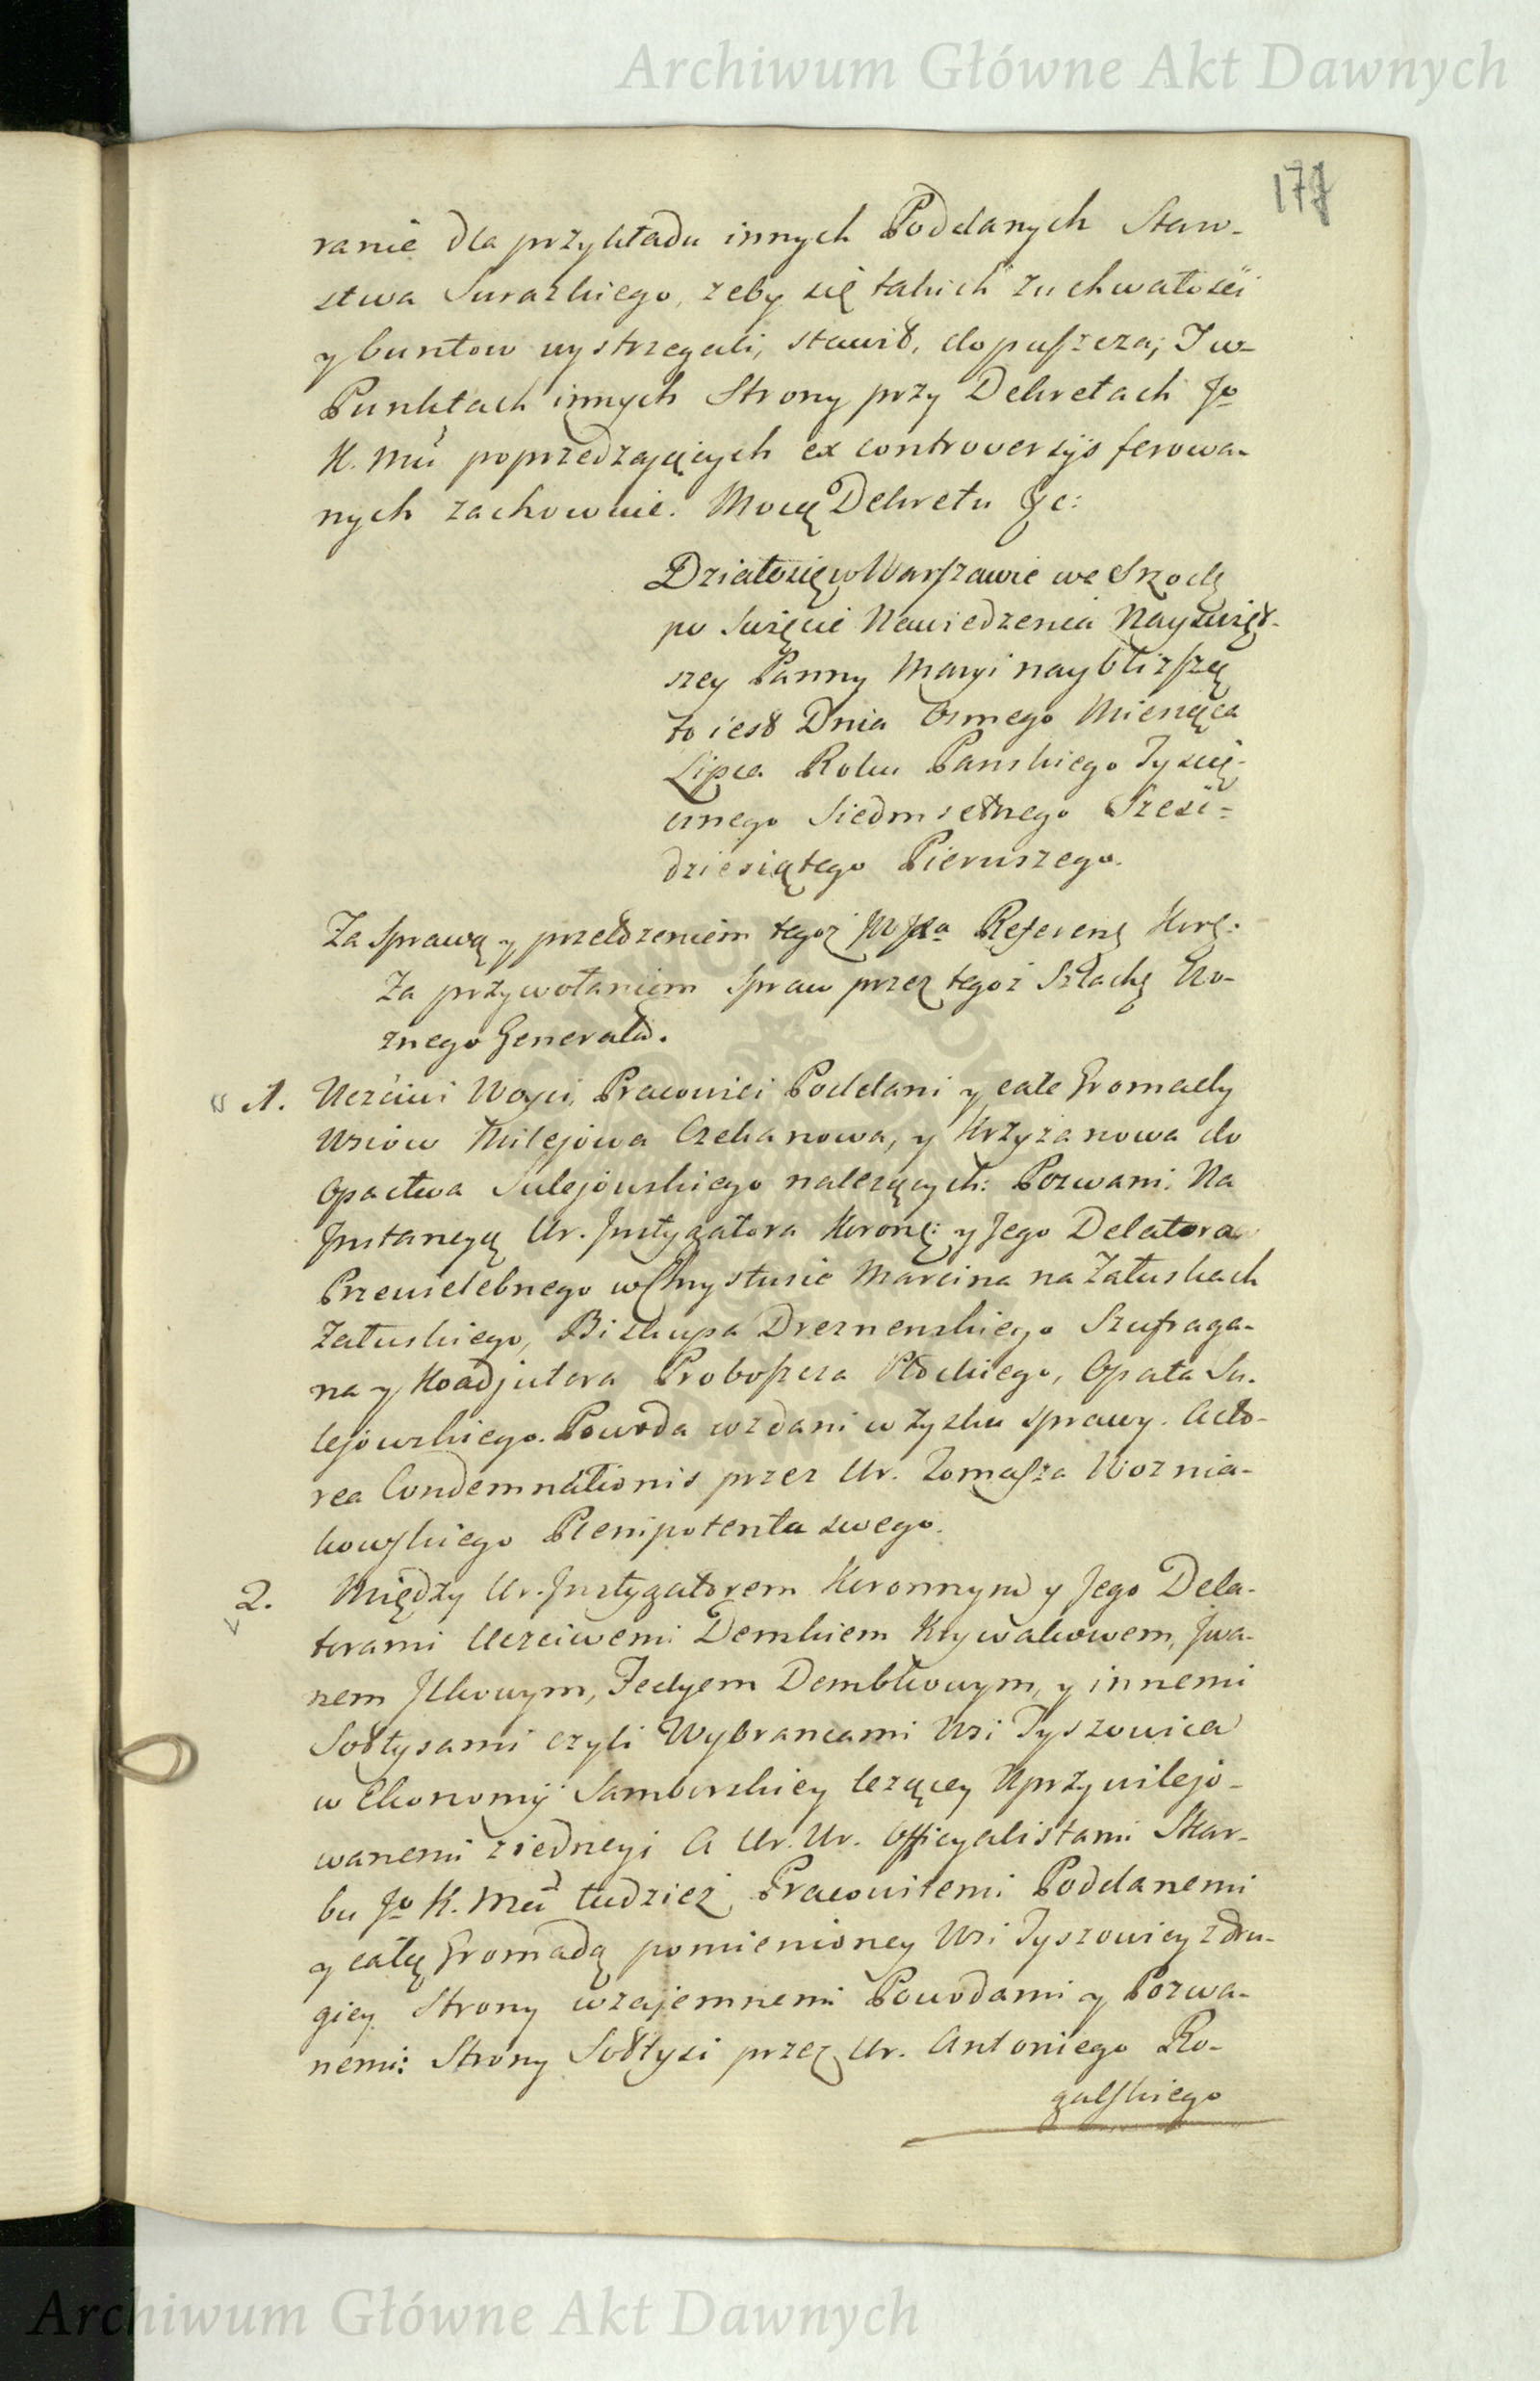 Archiwum Główne Akt Dawnych
177
ranie dla przykładu innych Poddanych Staro-
stwa Surazkiego, zeby się takich zuchwałosci
y buntow wystrzegali, stawił, dopuszcza; I w
Punktach innych Strony przy Dekretach Jo
K. Mci poprzedzaiących ex controversijs ferowa-
nych zachowuie. Mocą Dekretu &c:
Działo się w Warszawie we Srzodę
po Swięcie Nawiedzenia Nayswięt-
szey Panny Maryi naybliższą
to iest Dnia Osmego Miesiąca
Lipca Roku Panskiego Tysią-
cnego Siedmsetnego Szesć-
dziesiątego Pierwszego.
Za Sprawą y przełożeniem tegoż Referen: Kor:
Za przywołaniem Spraw przez tegoż Szlachę Wo-
znego Generała.
1. Uczciwi Woyci, Pracowici Poddani y całe Gromady
Wsiów Milejowa Czekanowa, y Krzyżanowa do
Opactwa Sulejowskiego należących: Pozwani. Na
Instancyą Ur. Instygatora Koron: y Jego Delatora
Przewielebnego w Chrystusie Marcina na Załuskach
Załuskiego, Biskupa Drezneńskiego Szufraga-
na y Koadjutora Proboszcza Płockiego, Opata Su-
lejowskiego. Powoda wzdani w zysku sprawy. Acto-
rea Condemnationis przez Ur. Tomasza Woznia-
kowskiego Plenipotenta swego.
2. Między Ur. Instygatorem Koronnym y Jego Dela-
torami Uczciwemi Demkiem Krywakowem, Iwa-
nem Ilkowym, Fedyem Dembkowym, y innemi
Sołtysami czyli Wybrancami Wsi Tyszowica
w Ekonomij Samborskiey leżącey Uprzywilejo-
wanemi z iedneyi A Ur. Ur. Officyalistami Skar-
bu Jo K. Mci tudziez Pracowitemi Poddanemi
y całą Gromadą pomienioney Wsi Tyszowicy z dru-
giey Strony wzajemnemi Powodami y Pozwa-
nemi: Strony Sołtysi przez Ur. Antoniego Ro-
galskiego
Archiwum Główne Akt Dawnych